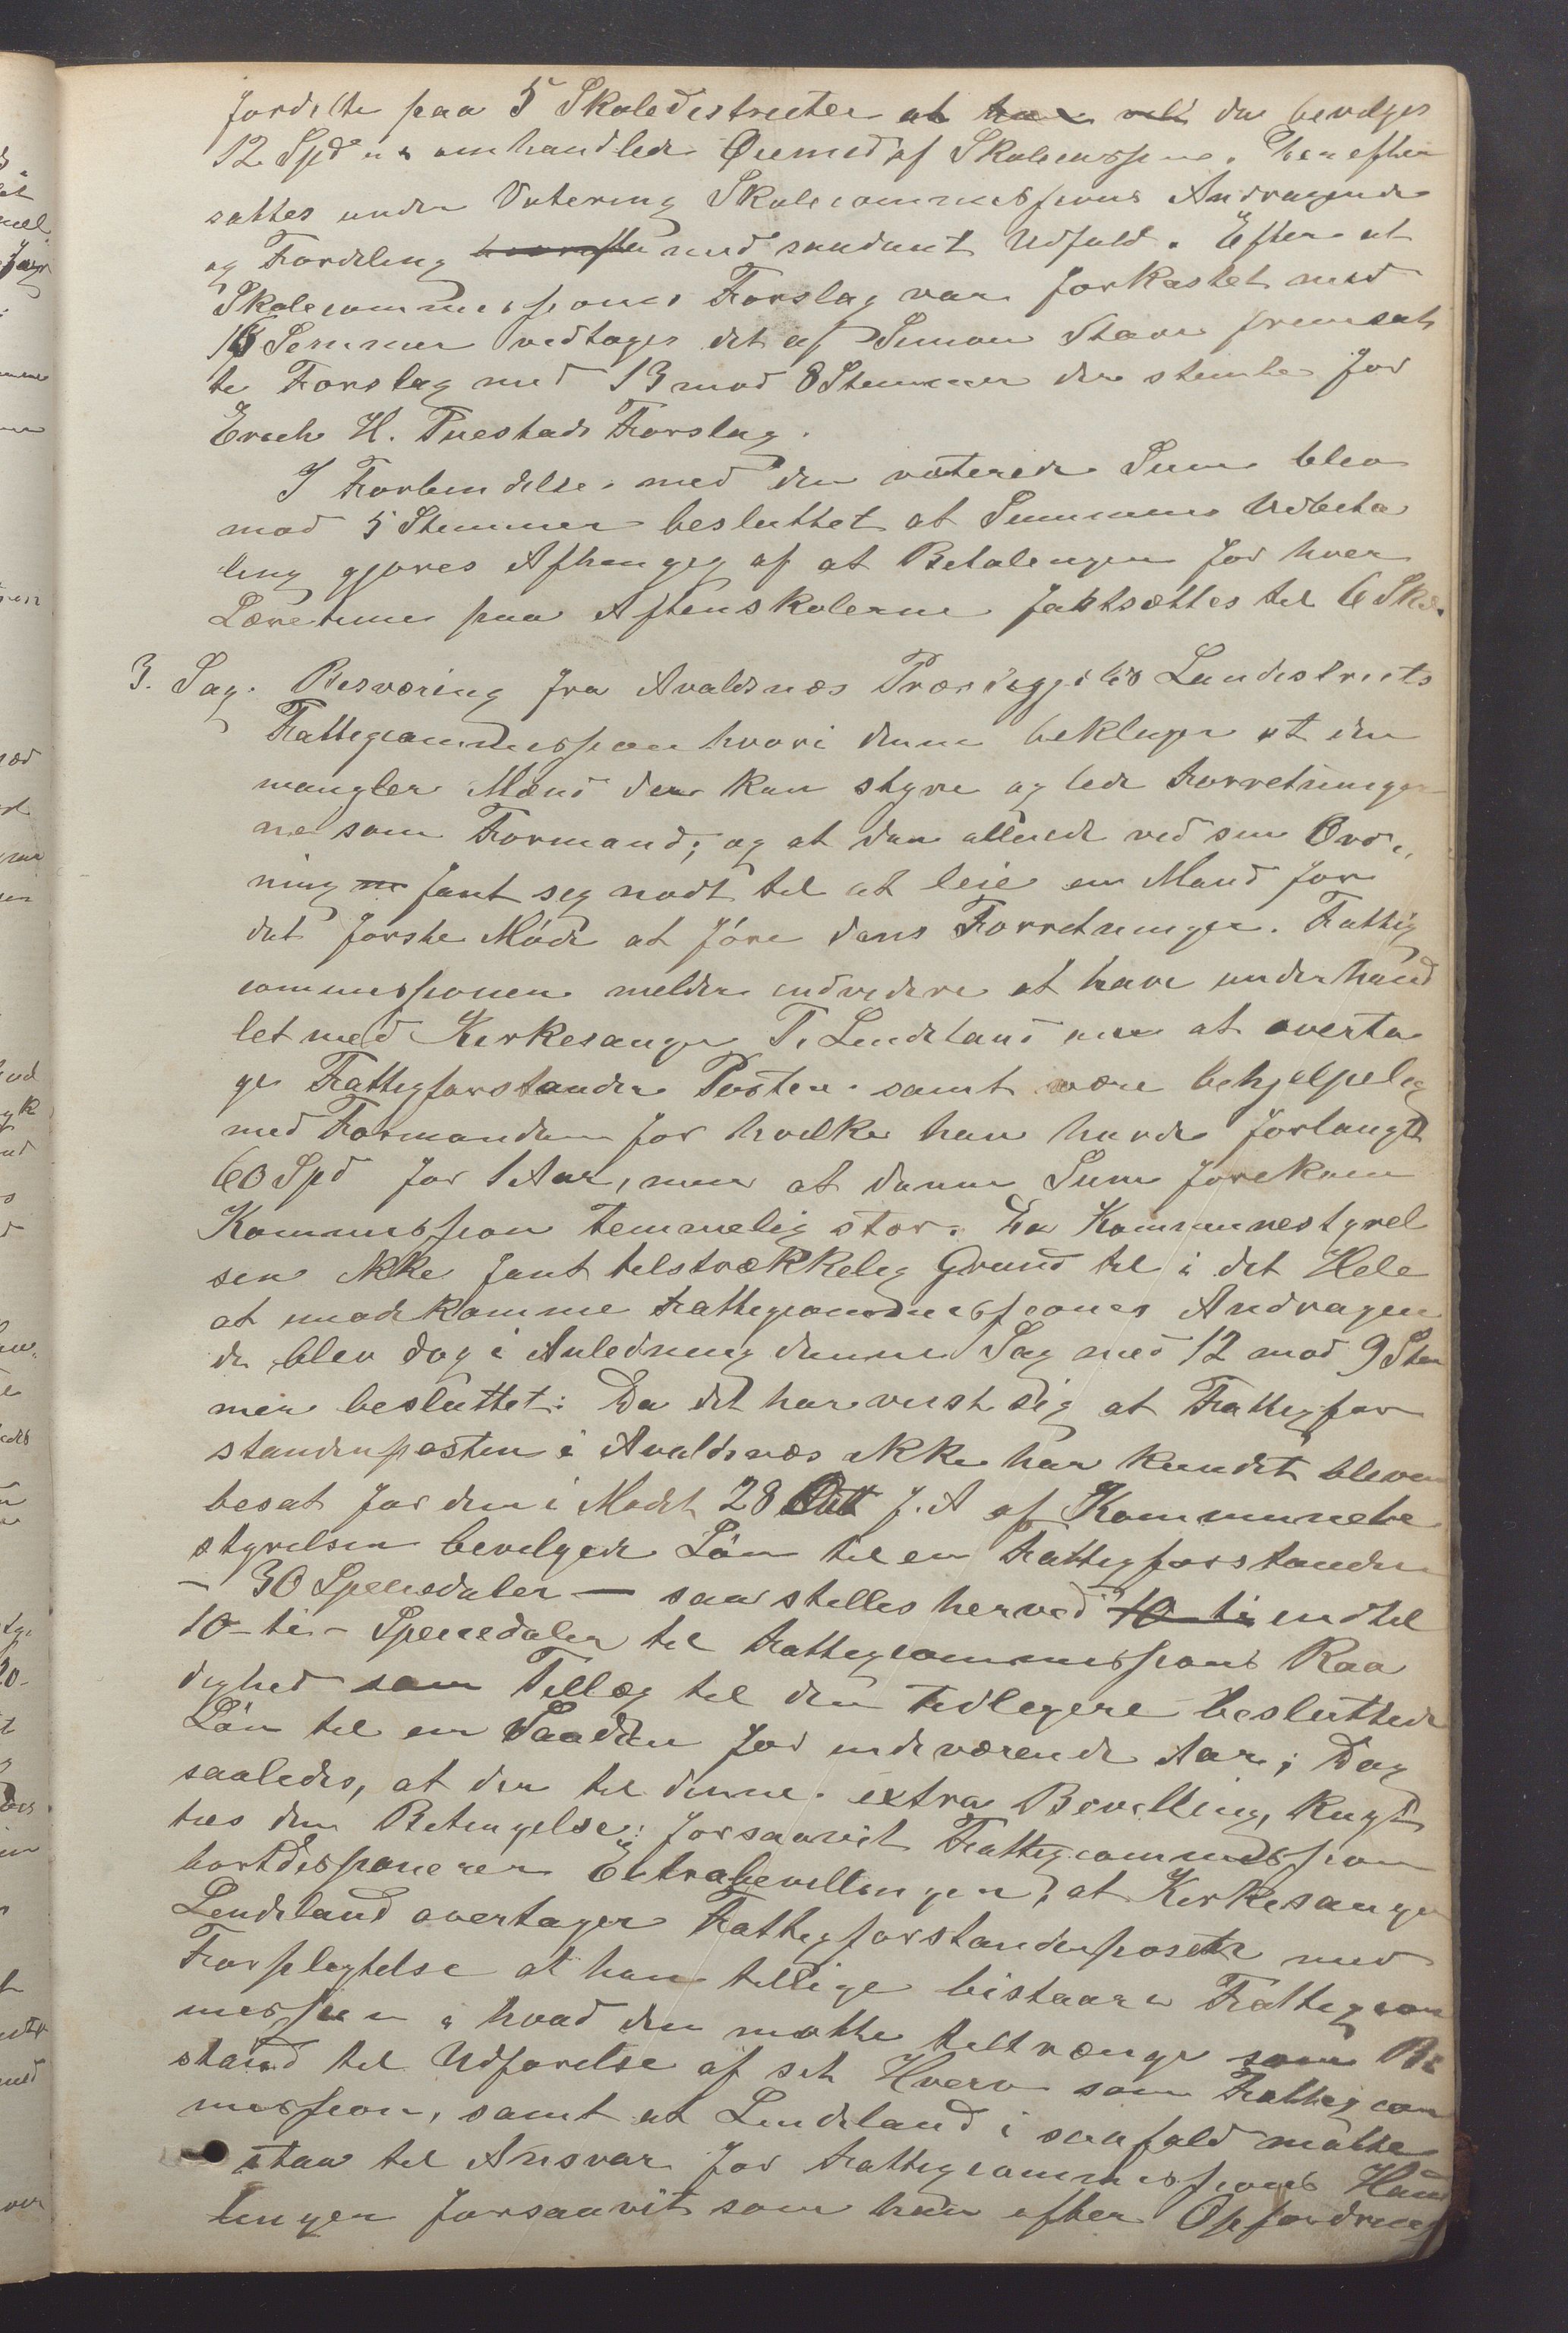 fordelte paa 5 Skoledistricter at der bevilges
12 Spd i omhandlede Øiemed af Skolecassen. Derefter
sattes under Votering Skolecommissionens Andragende
og Fordeling hvorefter med saadant Udfald. Efter at
Skolecommissionens Forslag var forkastet med
16 Stemmer vedtoges det af Simon Stave fremsat
te Forslag med 13 mod 8 Stemmer der stemte for
Erich H. Tuestads Forslag.
I Forbindelse med den voterede Sum blev
mod 5 Stemmer besluttet at Summens Udbeta
ling gjøres Afhengig af at Betalingen for hver
Læretime paa Aftenskolerne fastsættes til 6 Sk.
3. Sag. Besværing fra Avaldsnæs Præstegjelds Landdistricts
Fattigcommission hvori denne beklager at den
mangler Mænd der kan styre og lede Forretninger
ne som Formand; og at den allerede ved sin Ord
ning fant seg nødt til at leie en Mand for
det første Møde at føre dens Forretninger. Fattig
commissionen melder endvidere at have underhand
let med Kirkesanger T. Lendeland om at overta
ge Fattigforstander Posten samt være behjelpelig
med Formanden for hvilke han havde forlangt
60 Spd for 1 Aar, men at denne Sum forekom
Kommission temmelig stor. Da Kommunestyrel
sen ikke fant tilstrækkelig Grund til i det Hele
at imødekomme Fattigcommissionens Andragen
de blev dog i Anledning denne Sag med 12 mod 9 Stem
mer besluttet: Da det har viist sig at Fattigfor
standerposten i Avaldsnæs ikke har kundet bleven
besat for den i Mødet 28 Oct f. A af Kommunebe
styrelsen bevilgede Løn til en Fattigforstander
- 30 Speciedaler - saa stilles herved 10 ti indtil
10 - ti - Speciedaler til Fattigcommissionens Raa
dighed som Tillæg til den tidligere besluttede
Løn til en Saadan for indeværende Aar; Dog
saaledes, at der til denne extra Bevilling, knyt
tes den Betingelse: forsaavit Fattigcommission
bortdisponerer Extrabevillingen, at Kirkesanger
Lendeland overtager Fattigforstanderposten med
Forpligtelse at han tillige bistaar Fattigcom
mission i hvad den maatte tiltrænge som Bi
stand til Udførelse af sit Hverv som Fattigcom
mission, samt at Lendeland i saafald maatte
staa til Ansvar for Fattigcommissionens Hand
linger forsaavit som han efter Opfordring